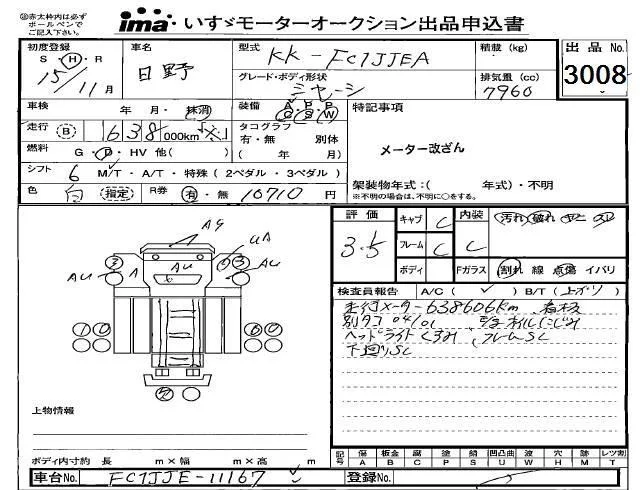 ㊟赤太枠内は必ず
ボールペンで
ご記入下さい。
ima いすゞモーターオークション出品申込書
初度登録
S・H・R
15/11月
車名
日野
型式
KK-FC7JJEA
グレード・ボディ形状
シャーシ
積載(kg)
排気量(cc)
7960
出品No.
3008
車検 年・月・抹消
装備 A・P・P
C S W
特記事項
走行 B 638 000km
タコグラフ
有・無 別体
( 年 月)
メーター改ざん
燃料 G・D・HV 他( )
シフト 6 M/T・A/T・特殊(2ペダル・3ペダル)
架装物年式:( 年式)・不明
※不明の場合は、不明に○をする。
色 白 (指定) R券 有・無 10710円
評価
3.5
キャブ C
フレーム C
ボディ
内装 C
Fガラス
汚れ・破れ
割れ 線 点傷 イバリ
検査員報告 A/C( ✓ ) B/T( )
走行メーター638606km
ヘッドライトくすみ、フレームSC
下廻りSC
AG
UA
AU
AU
A
AU
上物情報
ボディ内寸約 長 m×幅 m×高 m
記号
傷 A
板金 B
腐 C
塗 P
錆 S
凹凸曲 U
波 W
穴 H
跡 M
レツ割 T
車台No. FC7JJE-11167
登録No.